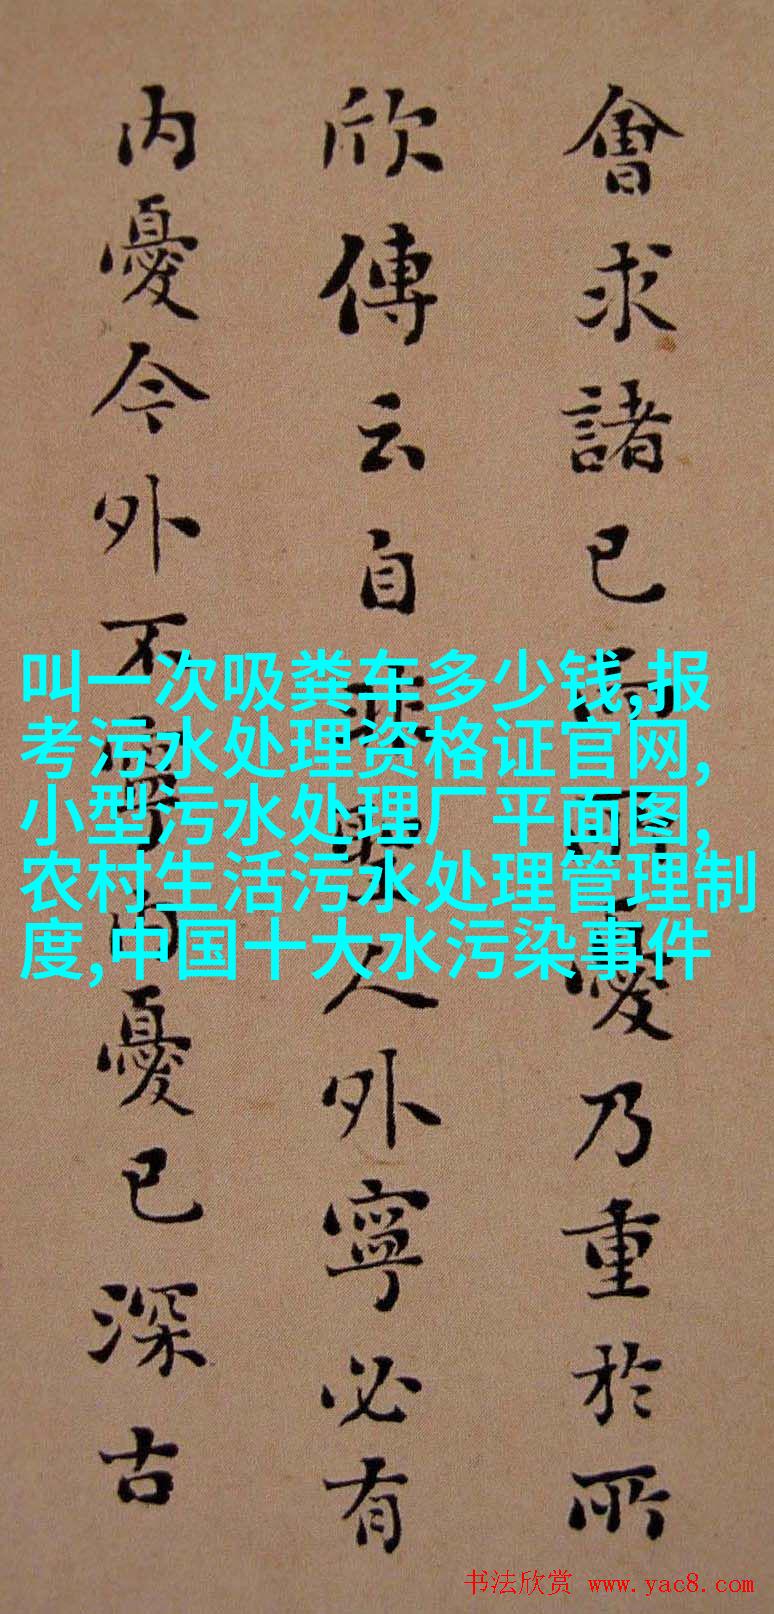 會求諸已而憂乃重於所
欣傳云自人外寧必有
内憂今外不寧内憂已深古
叫一次吸粪车多少钱,报
考污水处理资格证官网,
小型污水处理厂平面图,
农村生活污水处理管理制
度,中国十大水污染事件
书法欣赏 www.yac8.com